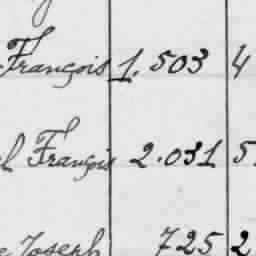 François 1.503 4
François 2.031 5
Joseph 725 2